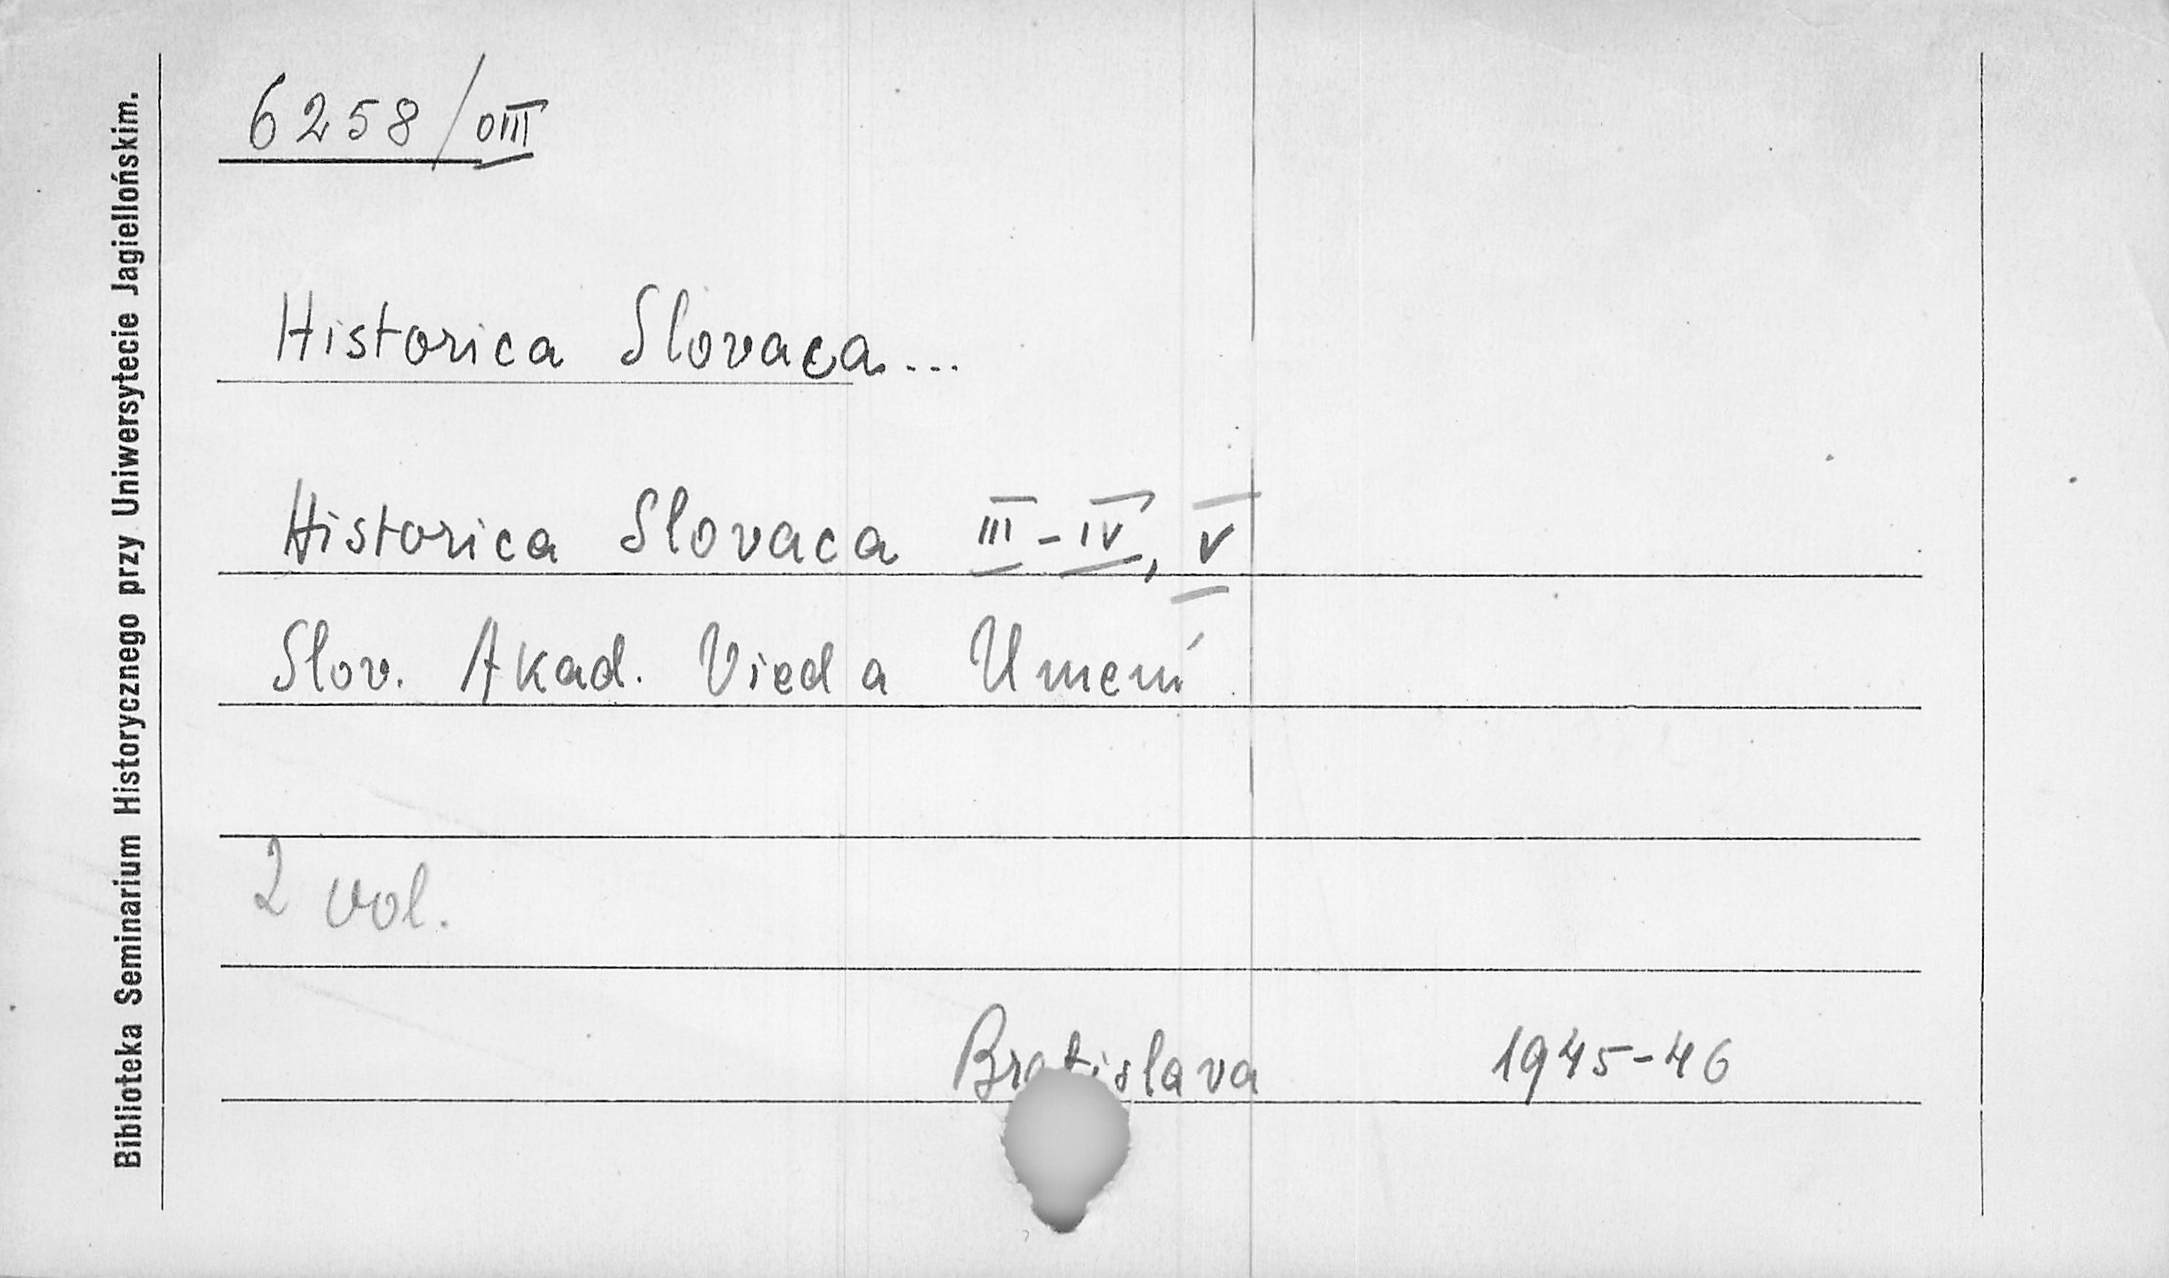 Biblioteka Seminarium Historycznego przy Uniwersytecie Jagiellońskim.
6258/OIII
Historica Slovaca...
Historica Slovaca III-IV, V
Slov. Akad. Vied a Umení
2 vol.
Bratislava 1945-46